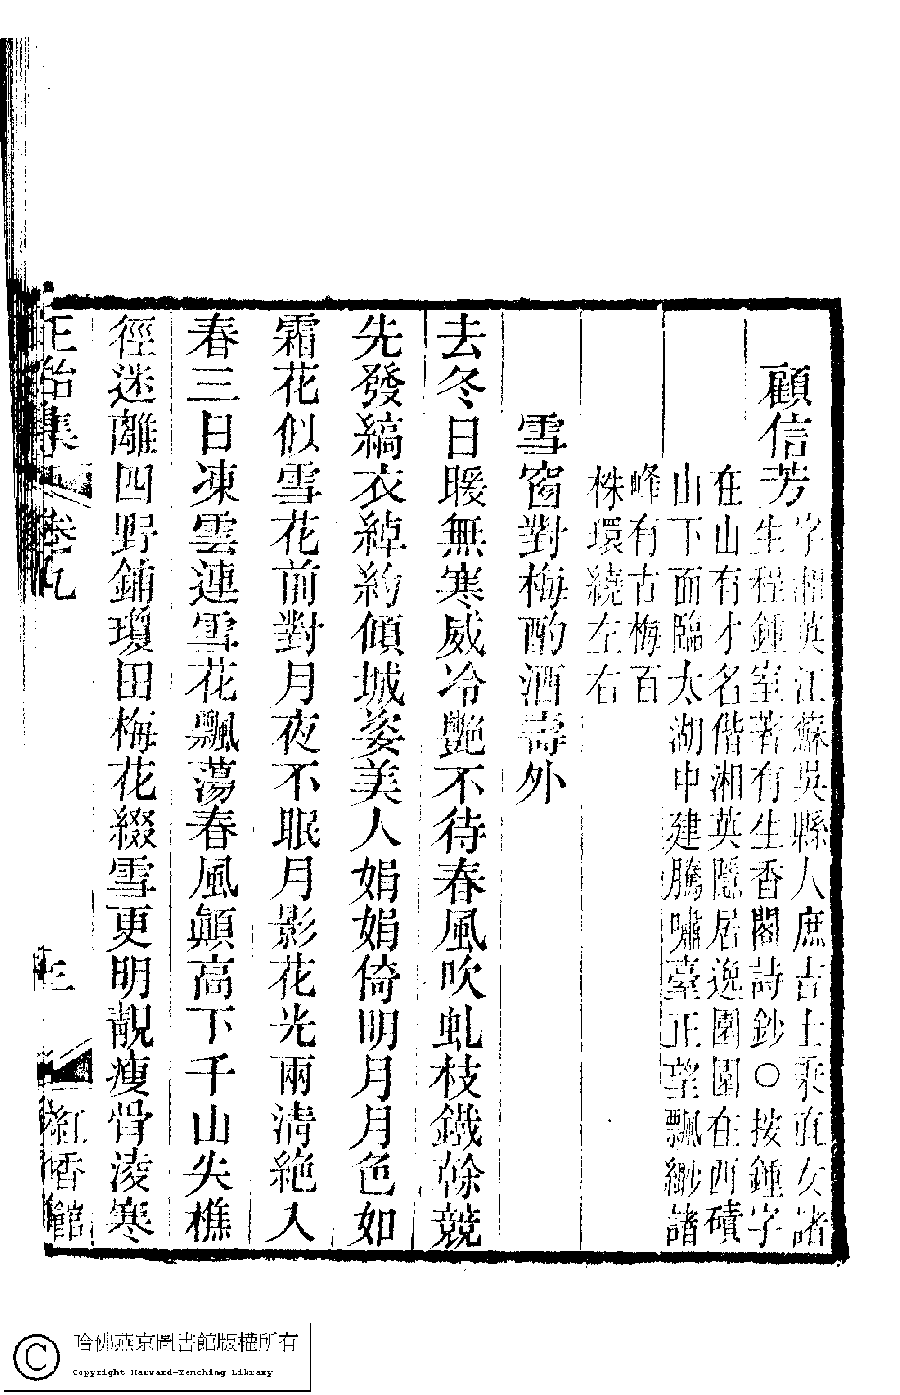 顧信芳
字湘英江蘇吳縣人庶吉士秉直女諸
生程鍾室著有生香閣詩鈔○按鍾字
在山有才名偕湘英隱居逸園園在西磧
山下面臨太湖中建騰嘯臺正望飄緲諸
峰有古梅百
株環繞左右
雪窗對梅酌酒壽外
去冬日暖無寒威冷艷不待春風吹虬枝鐵榦競
先發縞衣綽約傾城姿美人娟娟倚明月月色如
霜花似雪花前對月夜不眠月影花光兩清絶入
春三日凍雲連雪花飄蕩春風顛高下千山失樵
徑迷離四野鋪瓊田梅花綴雪更明靚瘦骨凌寒
正始集 卷九 三 紅香館
哈佛燕京圖書館版權所有
Copyright Harvard-Yenching Library